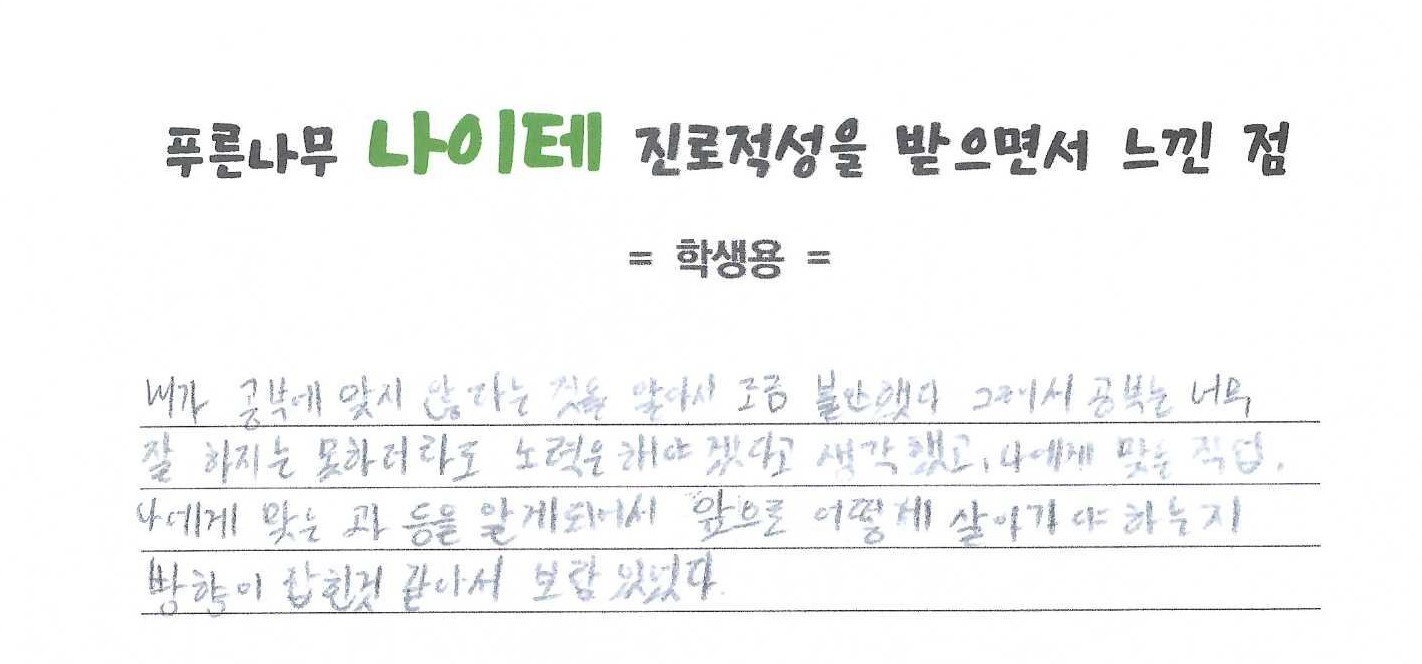 푸른나무 나이테 진로적성을 받으면서 느낀 점
= 학생용 =
내가 공부에 맞지 않다는 것을 알아서 조금 불안했다 그래서 공부는 너무
잘 하지는 못하더라도 노력은 해야 겠다고 생각했고, 나에게 맞는 직업,
나에게 맞는 과 등을 알게되어서 앞으로 어떻게 살아가야 하는지
방향이 잡힌것 같아서 보람 있었다.